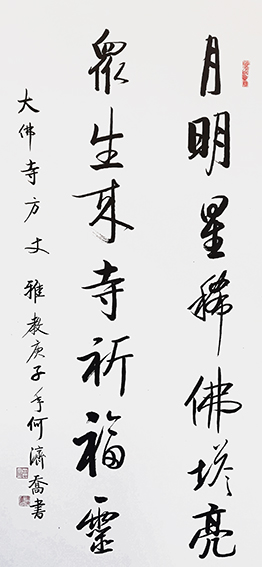 月明星稀佛塔亮
眾生來寺祈福靈
大佛寺方丈 雅教庚子年何濟喬書